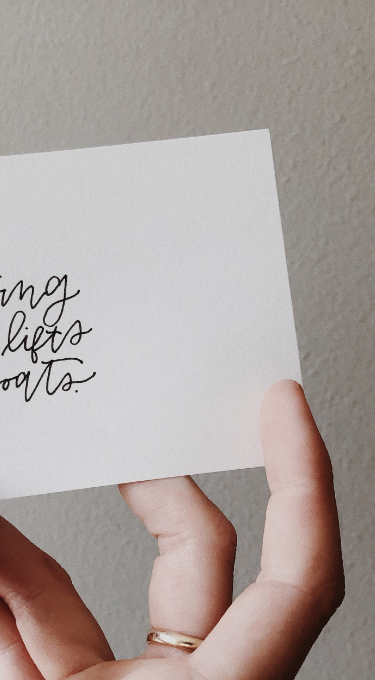 ing
lifts
oats.